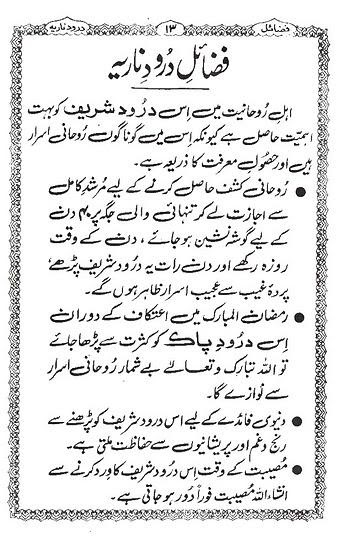 فضائل ۱۳ درودِ ناریہ
فضائلِ درودِ ناریہ
اہلِ رُوحانیت میں اِس درُود شریف کو بہت
اہمیّت حاصل ہے کیونکہ اِس میں گوناگوں رُوحانی اسرار
ہیں اور حصُولِ معرفت کا ذریعہ ہے۔
● رُوحانی کشف حاصل کرنے کے لیے مُرشدِ کامل
سے اجازت لے کر تنہائی والی جگہ پر ۴۰ دن
کے لیے گوشہ نشین ہو جائے ، دن کے وقت
روزہ رکھے اور دن رات یہ درود شریف پڑھے،
پردۂ غیب سے عجیب اسرار ظاہر ہوں گے۔
● رمضان المبارک میں اعتکاف کے دوران
اِس درُودِ پاک کو کثرت سے پڑھا جائے
تو اللہ تبارک وتعالےٰ بے شمار رُوحانی اسرار
سے نوازے گا۔
● دنیوی فائدے کے لیے اس درود شریف کو پڑھنے سے
رنج وغم اور پریشانیوں سے حفاظت ملتی ہے۔
● مُصیبت کے وقت اِس درُود شریف کا وِرد کرنے سے
انشاء اللہ مُصیبت فوراً دُور ہو جاتی ہے۔